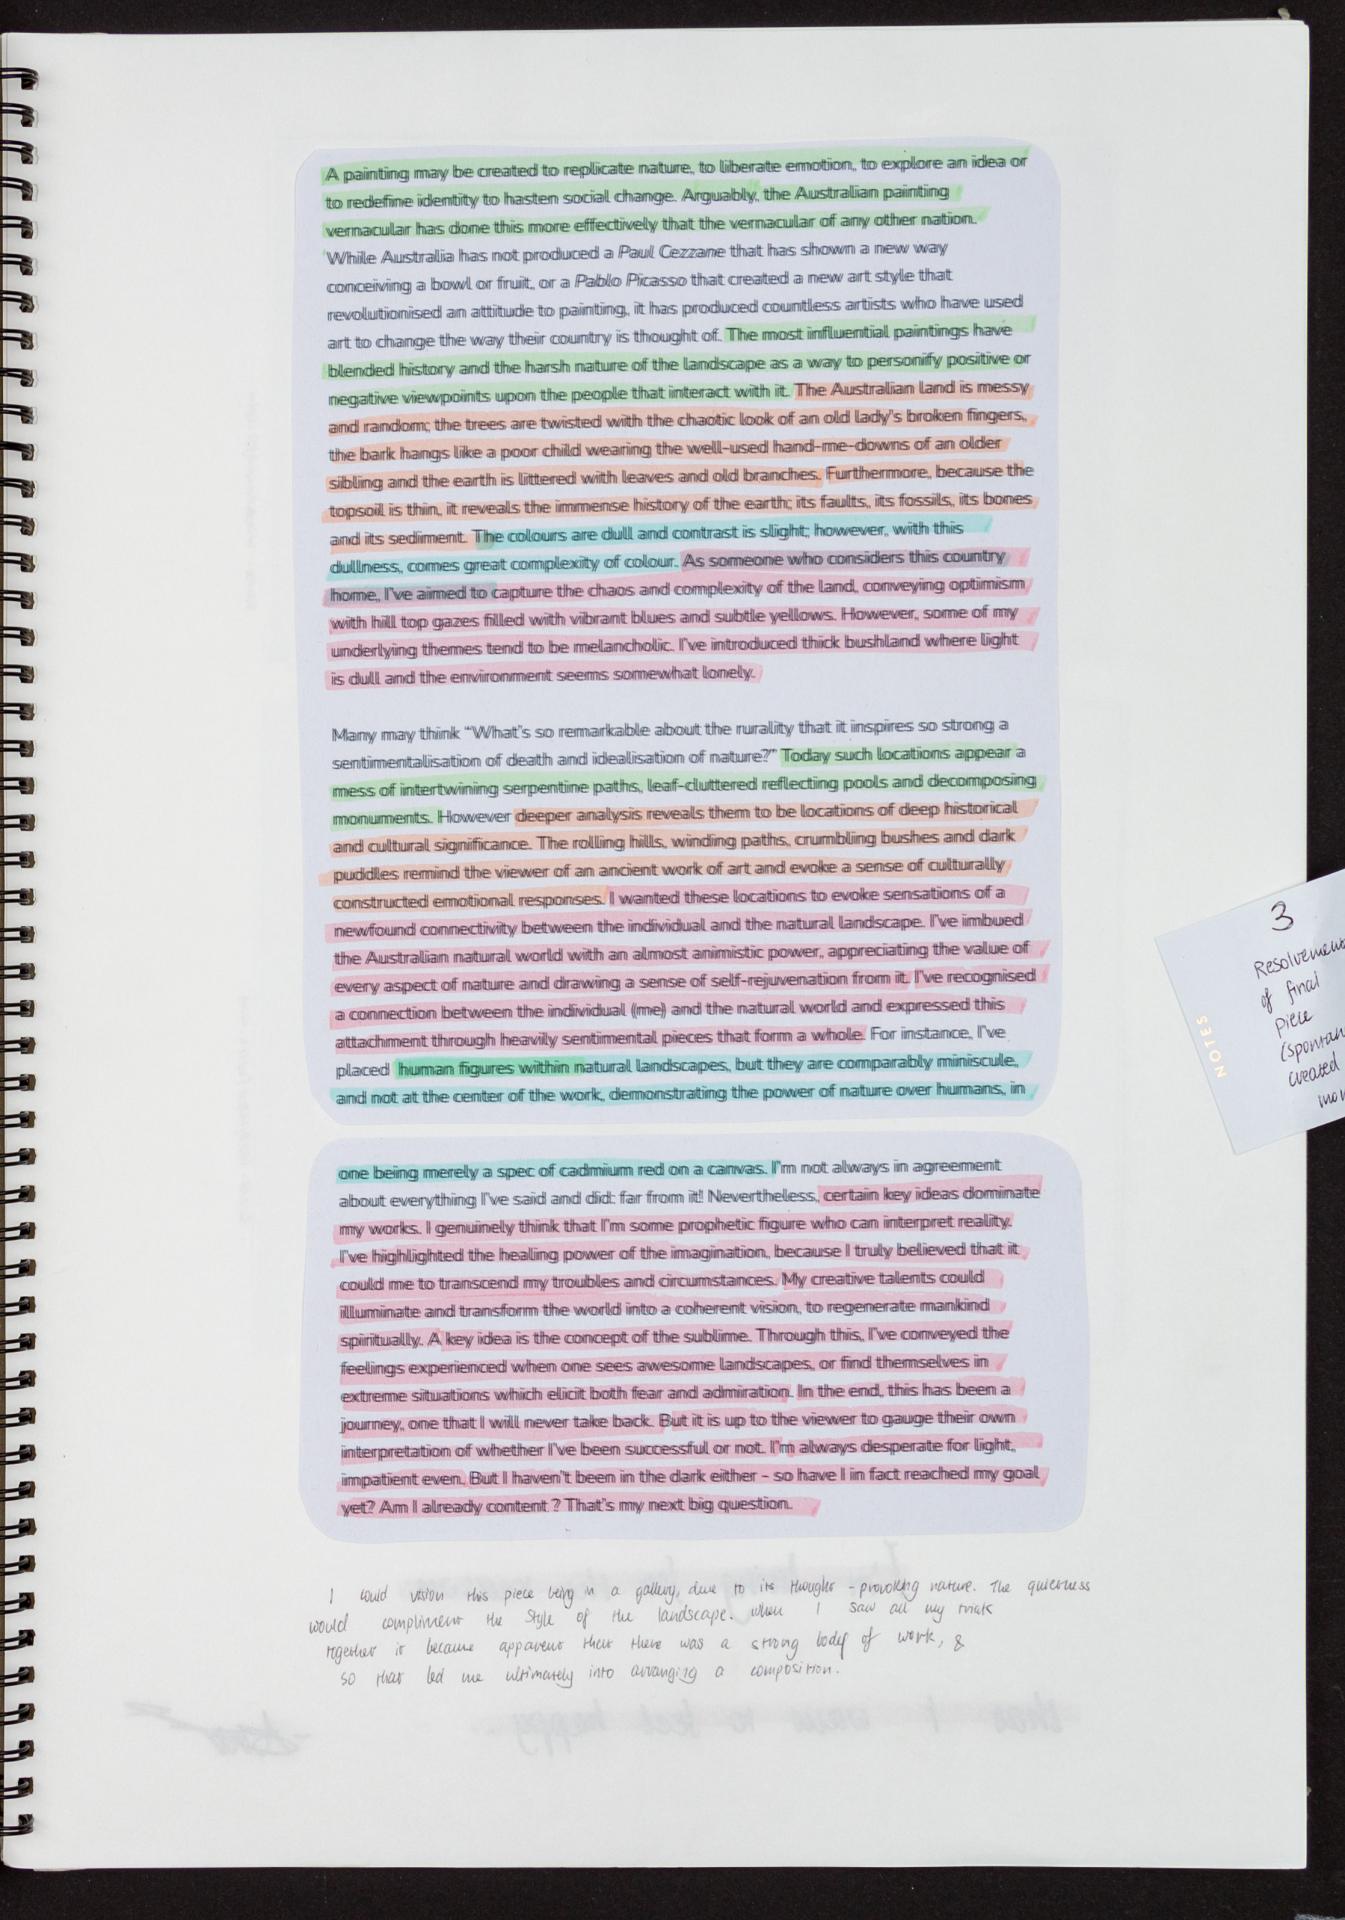 A painting may be created to replicate nature, to liberate emotion, to explore an idea or
to redefine identity to hasten social change. Arguably, the Australian painting
vernacular has done this more effectively that the vernacular of any other nation.
While Australia has not produced a Paul Cezzane that has shown a new way
conceiving a bowl or fruit, or a Pablo Picasso that created a new art style that
revolutionised an attitude to painting, it has produced countless artists who have used
art to change the way their country is thought of. The most influential paintings have
blended history and the harsh nature of the landscape as a way to personify positive or
negative viewpoints upon the people that interact with it. The Australian land is messy
and random; the trees are twisted with the chaotic look of an old lady's broken fingers,
the bark hangs like a poor child wearing the well-used hand-me-downs of an older
sibling and the earth is littered with leaves and old branches. Furthermore, because the
topsoil is thin, it reveals the immense history of the earth; its faults, its fossils, its bones
and its sediment. The colours are dull and contrast is slight; however, with this
dullness, comes great complexity of colour. As someone who considers this country
home, I've aimed to capture the chaos and complexity of the land, conveying optimism
with hill top gazes filled with vibrant blues and subtle yellows. However, some of my
underlying themes tend to be melancholic. I've introduced thick bushland where light
is dull and the environment seems somewhat lonely.
Many may think "What's so remarkable about the rurality that it inspires so strong a
sentimentalisation of death and idealisation of nature?" Today such locations appear a
mess of intertwining serpentine paths, leaf-cluttered reflecting pools and decomposing
monuments. However deeper analysis reveals them to be locations of deep historical
and cultural significance. The rolling hills, winding paths, crumbling bushes and dark
puddles remind the viewer of an ancient work of art and evoke a sense of culturally
constructed emotional responses. I wanted these locations to evoke sensations of a
newfound connectivity between the individual and the natural landscape. I've imbued
the Australian natural world with an almost animistic power, appreciating the value of
every aspect of nature and drawing a sense of self-rejuvenation from it. I've recognised
a connection between the individual (me) and the natural world and expressed this
attachment through heavily sentimental pieces that form a whole. For instance, I've
placed human figures within natural landscapes, but they are comparably miniscule,
and not at the center of the work, demonstrating the power of nature over humans, in
one being merely a spec of cadmium red on a canvas. I'm not always in agreement
about everything I've said and did: far from it! Nevertheless, certain key ideas dominate
my works. I genuinely think that I'm some prophetic figure who can interpret reality.
I've highlighted the healing power of the imagination, because I truly believed that it
could me to transcend my troubles and circumstances. My creative talents could
illuminate and transform the world into a coherent vision, to regenerate mankind
spiritually. A key idea is the concept of the sublime. Through this, I've conveyed the
feelings experienced when one sees awesome landscapes, or find themselves in
extreme situations which elicit both fear and admiration. In the end, this has been a
journey, one that I will never take back. But it is up to the viewer to gauge their own
interpretation of whether I've been successful or not. I'm always desperate for light,
impatient even. But I haven't been in the dark either – so have I in fact reached my goal
yet? Am I already content ? That's my next big question.
I could vision this piece being in a gallery, due to its thought - provoking nature. The quietness
would compliment the style of the landscape. When I saw all my
together it became apparent that there was a strong body of work, &
so that led me ultimately into arranging a composition.
3
Resolvement
of final
piece
created
NOTES